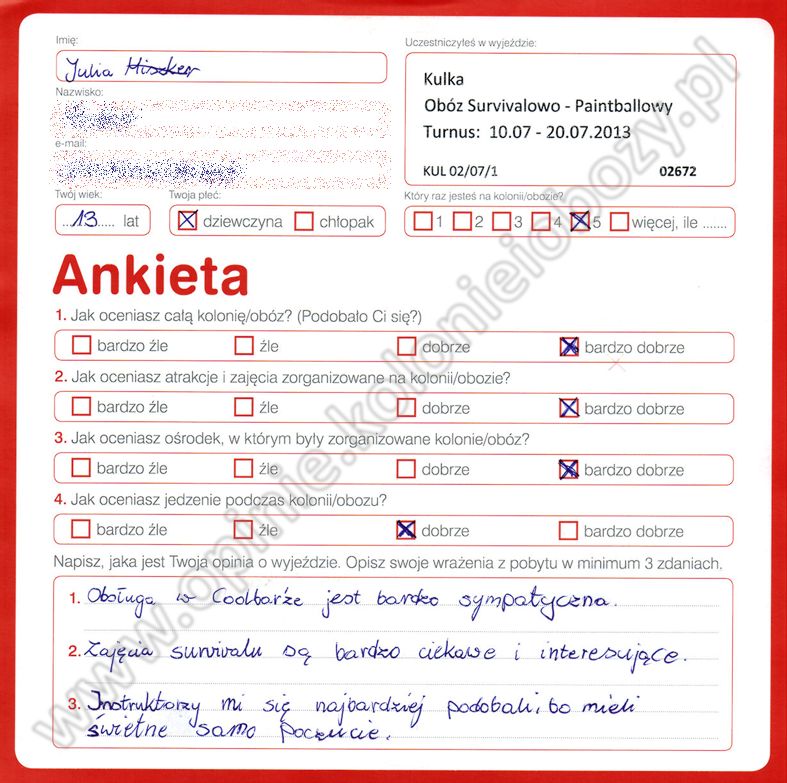 Imię:
Uczestniczyłeś w wyjeździe:
Julia
Kulka
Nazwisko:
Obóz Survivalowo - Paintballowy
Turnus: 10.07 - 20.07.2013
e-mail:
KUL 02/07/1 02672
Twój wiek: Twoja płeć: Który raz jesteś na kolonii/obozie?
13 lat dziewczyna chłopak 1 2 3 4 5 więcej, ile .......
Ankieta
1. Jak oceniasz całą kolonię/obóz? (Podobało Ci się?)
bardzo źle źle dobrze bardzo dobrze
2. Jak oceniasz atrakcje i zajęcia zorganizowane na kolonii/obozie?
bardzo źle źle dobrze bardzo dobrze
3. Jak oceniasz ośrodek, w którym były zorganizowane kolonie/obóz?
bardzo źle źle dobrze bardzo dobrze
4. Jak oceniasz jedzenie podczas kolonii/obozu?
bardzo źle źle dobrze bardzo dobrze
Napisz, jaka jest Twoja opinia o wyjeździe. Opisz swoje wrażenia z pobytu w minimum 3 zdaniach.
1. Obsługa w Coolbarże jest bardzo sympatyczna.
2. Zajęcia survivalu są bardzo ciekawe i interesujące.
3. Instruktorzy mi się najbardziej podobali, bo mieli
świetne samo poczucie.
www.opinie.kolonieiobozy.pl